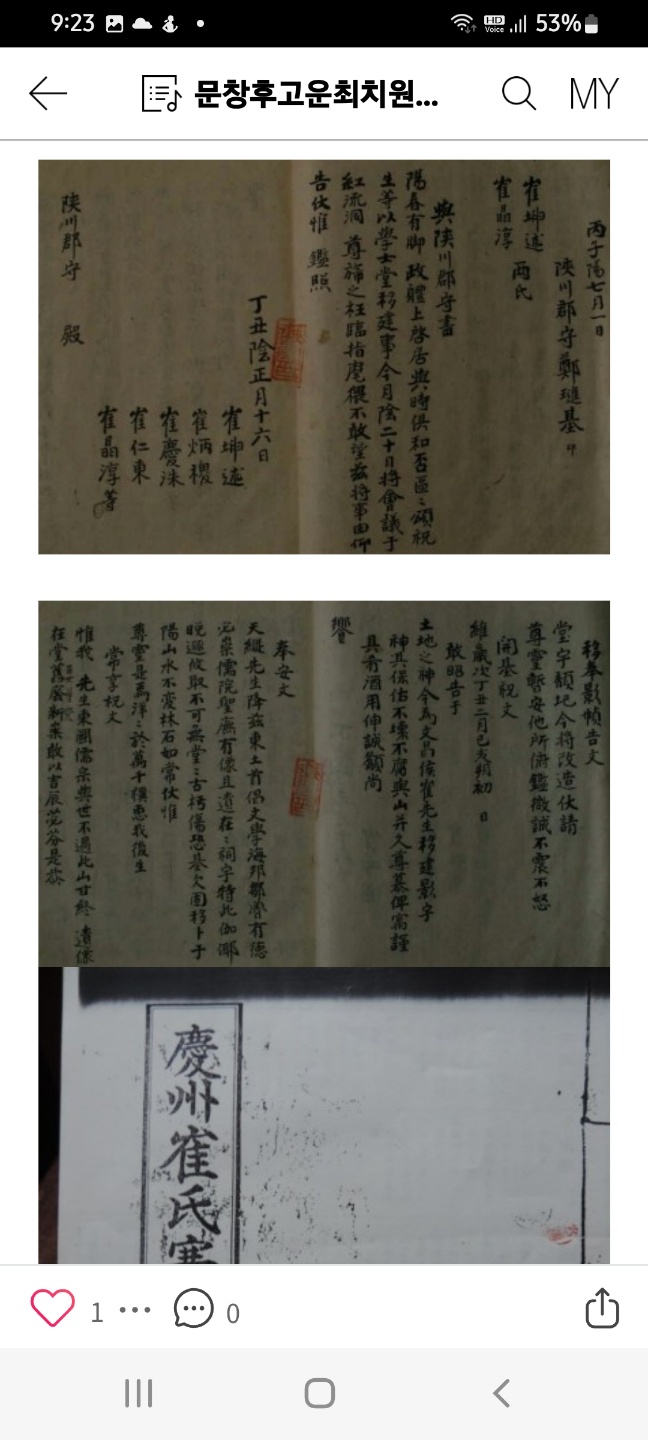 9:23
HD
Voice
53%
문창후고운최치원...
MY
丙子陽七月一日
陜川郡守鄭璡基
崔坤述
崔晶淳 兩氏
與陜川郡守書
陽春有脚 政體上啓居與時俱和否區〻頌祝
生等以學士堂移建事今月陰二十日將會議于
紅流洞 尊旆之枉臨指麾儘不敢望玆將事由仰
告伏惟 鑑照
丁丑陰正月十六日
崔坤述
崔炳稷
崔慶洙
崔仁東
崔晶淳等
陜川郡守 殿
移奉影幀告文
堂宇頹圮今將改造伏請
尊靈暫安他所俯鑑微誠不震不怒
開基祝文
維歲次丁丑二月己亥朔初 日
敢昭告于
土地之神今爲文昌侯崔先生移建影宇
神其保佑不壞不腐與山幷久尊慕俾寓謹
具肴酒用伸誠願尚
饗
奉安文
天縱先生降玆東土首倡文學海邦鄒魯有德
必崇儒院聖廡有像且遺在〻祠宇特此伽倻
晩遯攸取不可無堂〻古朽傷恐基欠圓移卜于
陽山水不變林石如常伏惟
尊靈是焉洋〻於萬千禩惠我後生
常享祝文
惟我 先生東國儒宗與世不遇此山甘終 遺像
在堂舊廢新崇敢以吉辰苾芬是薦
慶州崔氏
1
0